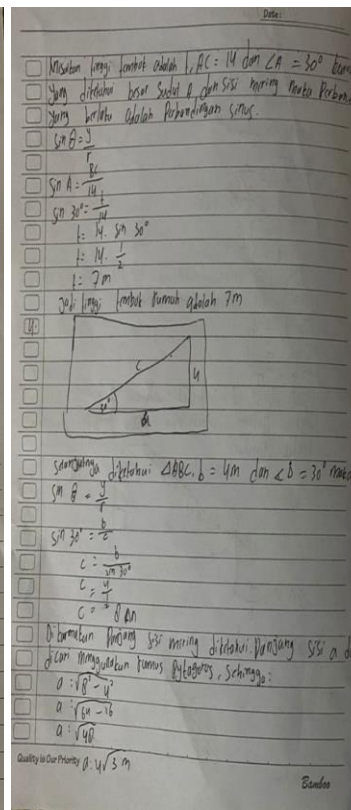 Date:
Misalkan tinggi tembok adalah t, AC = 14 dan ∠A = 30°
yang diketahui besar sudut A dan sisi miring maka
yang berlaku adalah Perbandingan sinus.
sin θ = y/r
sin A = BC/14
sin 30° = t/14
t = 14. sin 30°
t = 14. 1/2
t = 7 m
Jadi tinggi tembok rumah adalah 7m
4.
c
4
a
Selanjutnya diketahui ΔABC, b = 4m dan ∠B = 30° maka
sin θ = y/r
sin 30° = b/c
c = b/sin 30°
c = 4/
c = 8 m
panjang sisi miring diketahui. Panjang sisi a
dicari menggunakan rumus Pytagoras, sehingga:
a = √8² - 4²
a = √64 - 16
a = √48
Quality is Our Priority a = 4√3 m
Bamboo